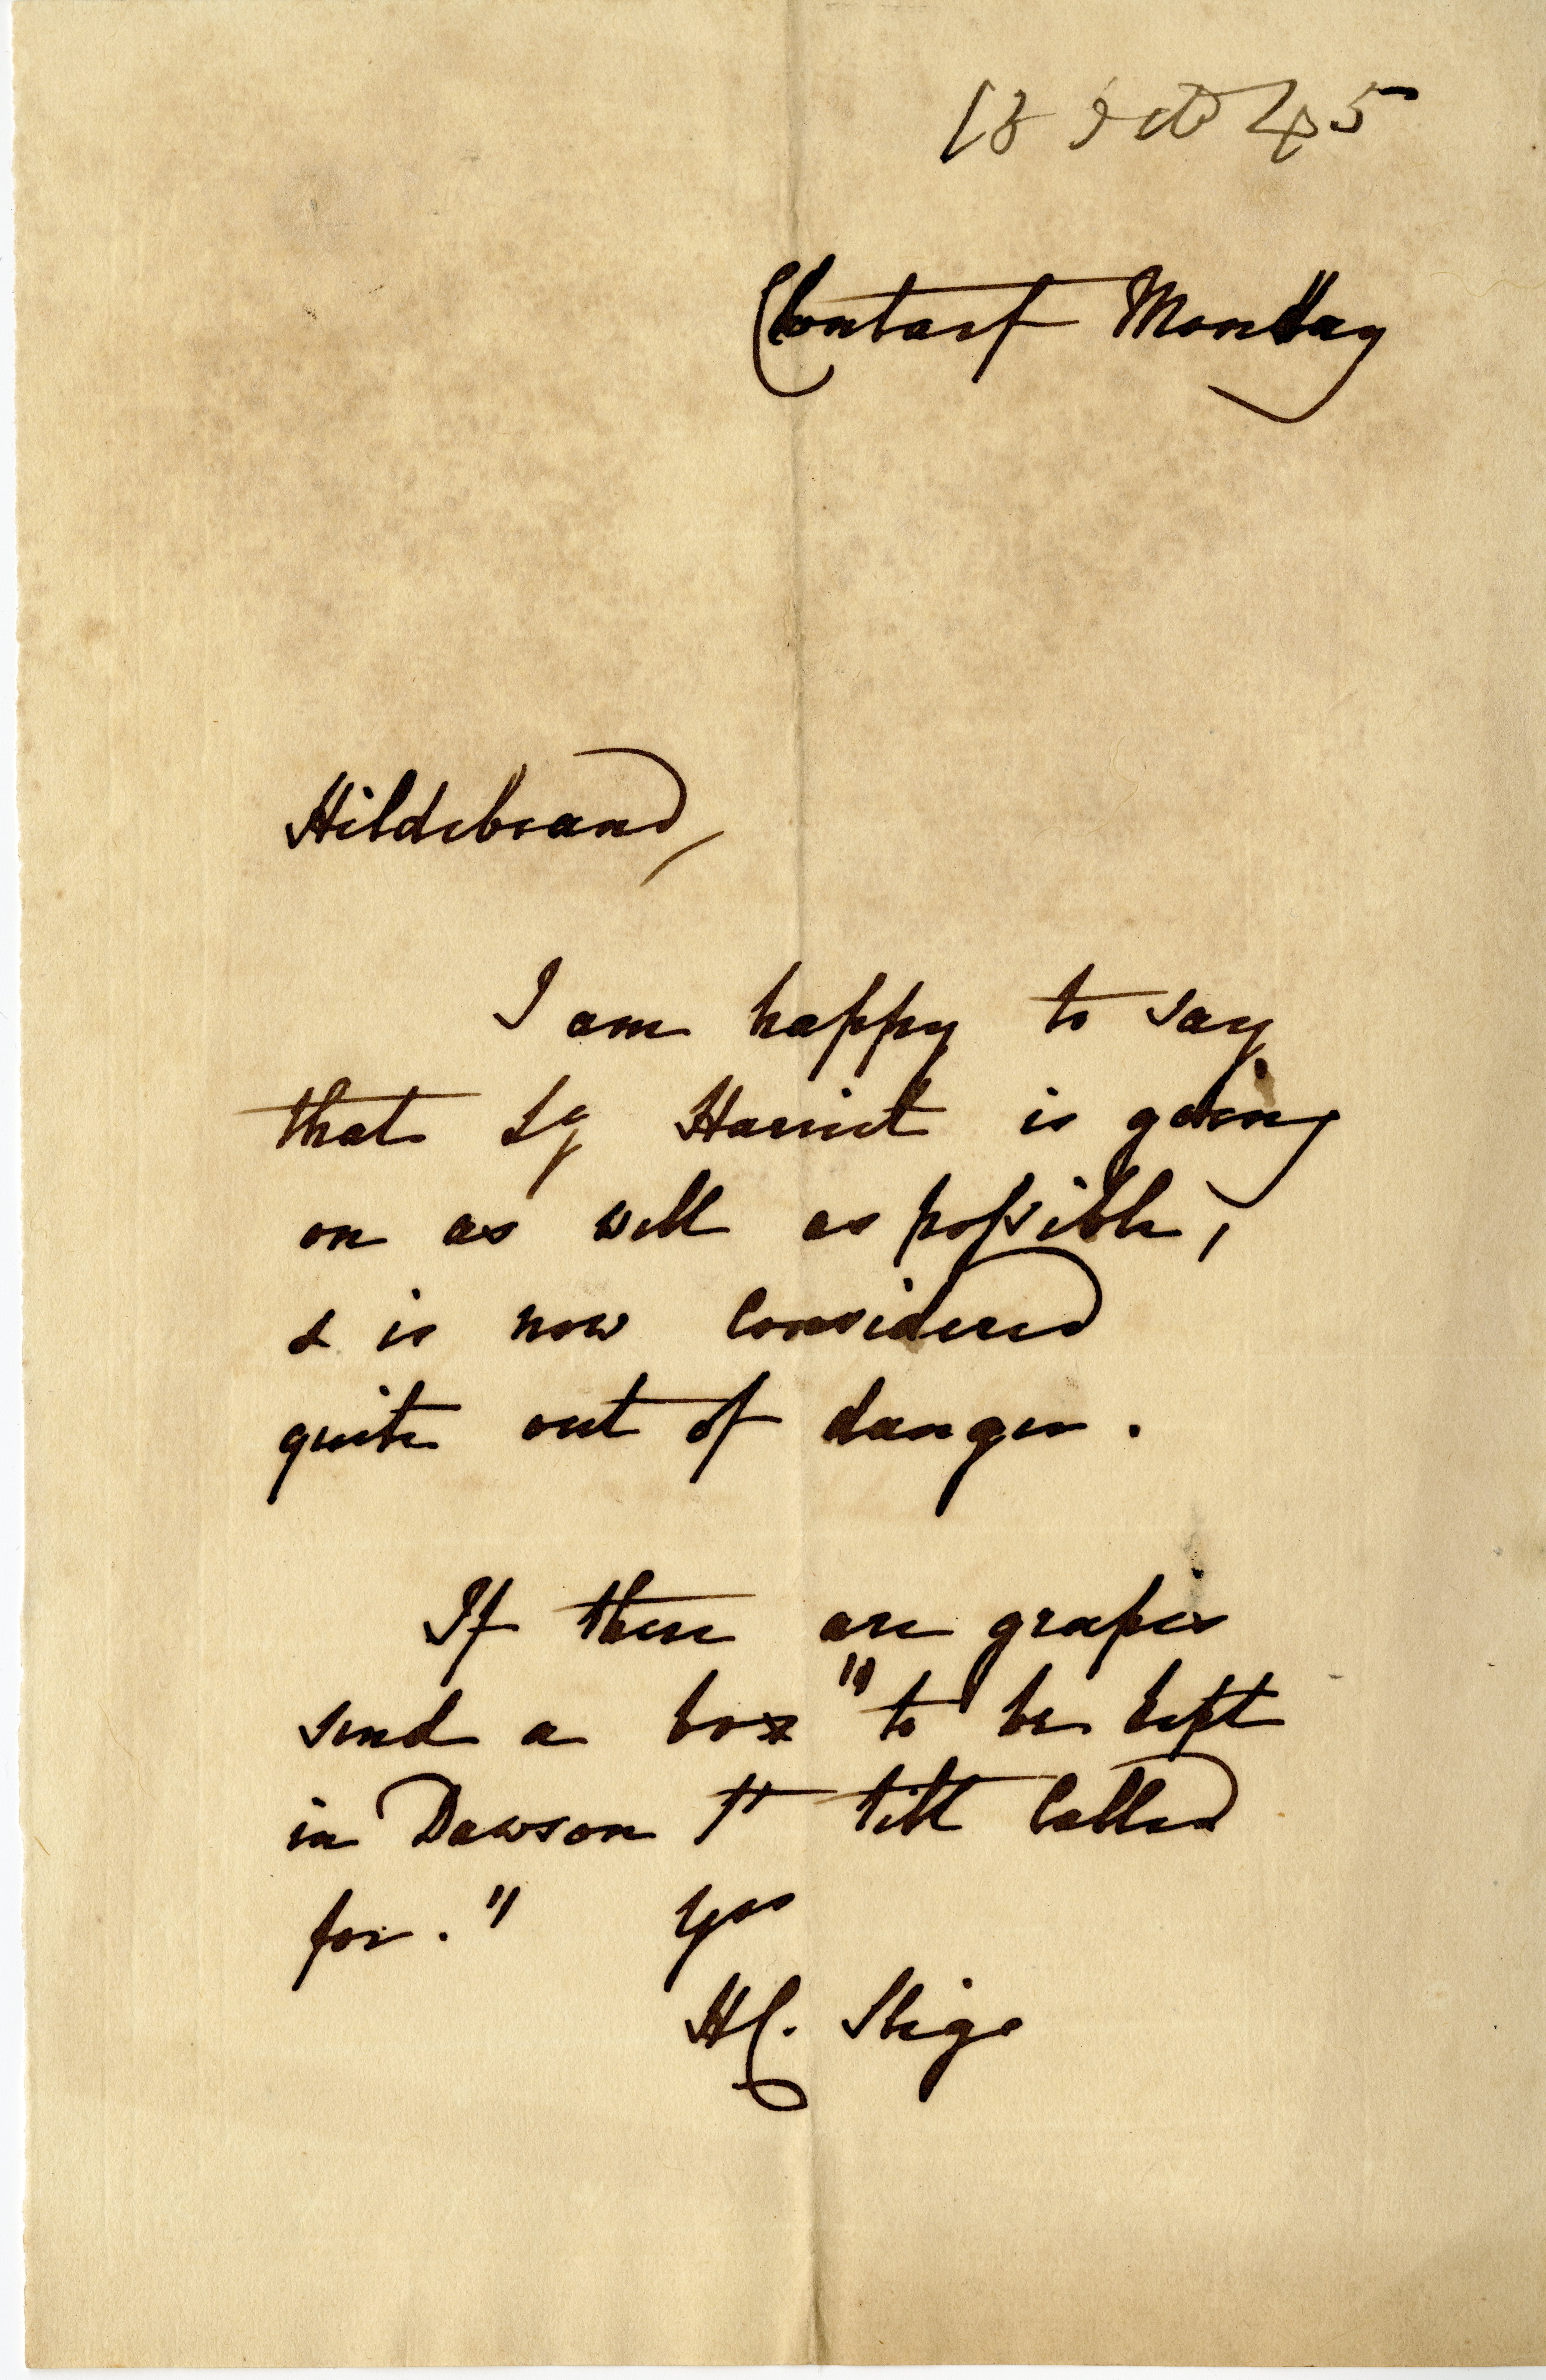 13 Oct 45
Clontarf Monday
Hildebrand,
I am happy to say
that Ly Harriet is going
on as well as possible,
& is now considered
quite out of danger.
If there are grapes
send a box "to be kept
in Dawson St till called
for." Yrs
HC. Sligo